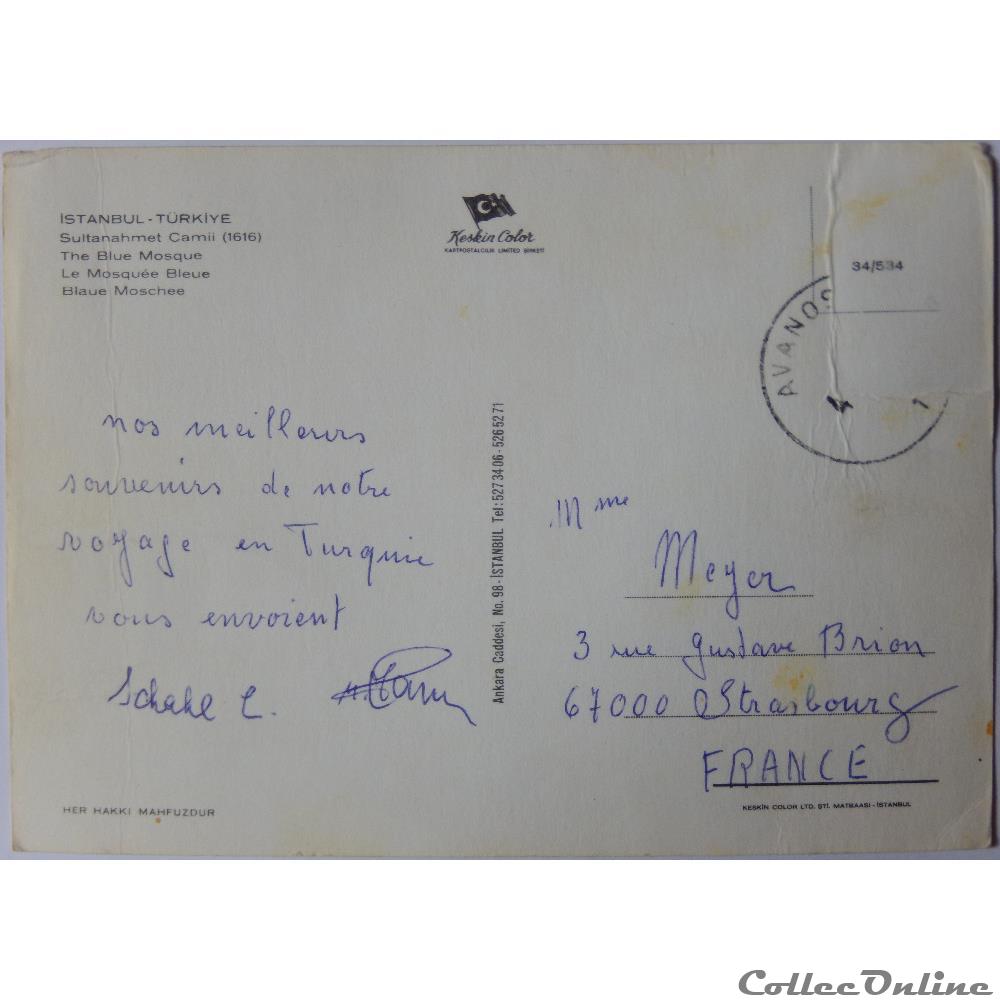 İSTANBUL - TÜRKİYE
Sultanahmet Camii (1616)
The Blue Mosque
Le Mosquée Bleue
Blaue Moschee
Keskin Color
KARTPOSTALCILIK LIMITED ŞIRKETI
34/534
AVANOS
4 1
nos meilleurs
souvenirs de notre
voyage en Turquie
vous envoient
Ankara Caddesi, No. 98 - İSTANBUL Tel: 5273406 - 5265271
Mme
Meyer
3 rue Gustave Brion
67000 Strasbourg
FRANCE
HER HAKKI MAHFUZDUR
KESKİN COLOR LTD. ŞTİ. MATBAASI - İSTANBUL
CollecOnline